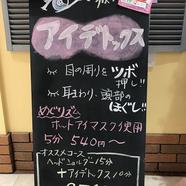 アイデトックス
目の周りをツボ押し
耳まわり、頭部のほぐし!!
めぐリズム
ホットアイマスク使用
5分 540円〜
オススメコース
ヘッドショルダー15分
+アイデトックス10分